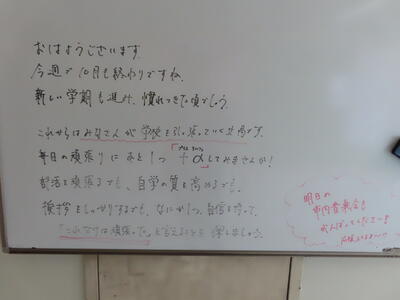 おはようございます。
今週で10月も終わりですね。
新しい学期も進み、慣れてきた頃でしょう。
これからはみなさんが学校を引っ張っていく時期です。
プラス アルファ
毎日の頑張りにあと1つ「+α」してみませんか!
部活を頑張るでも、自学の質を高めるでも、
挨拶をしっかりするでも、なにか1つ、自信を持って、
「これだけは頑張った」と言えることを探しましょう。
明日の
市内音楽会も
がんばってくださーい!